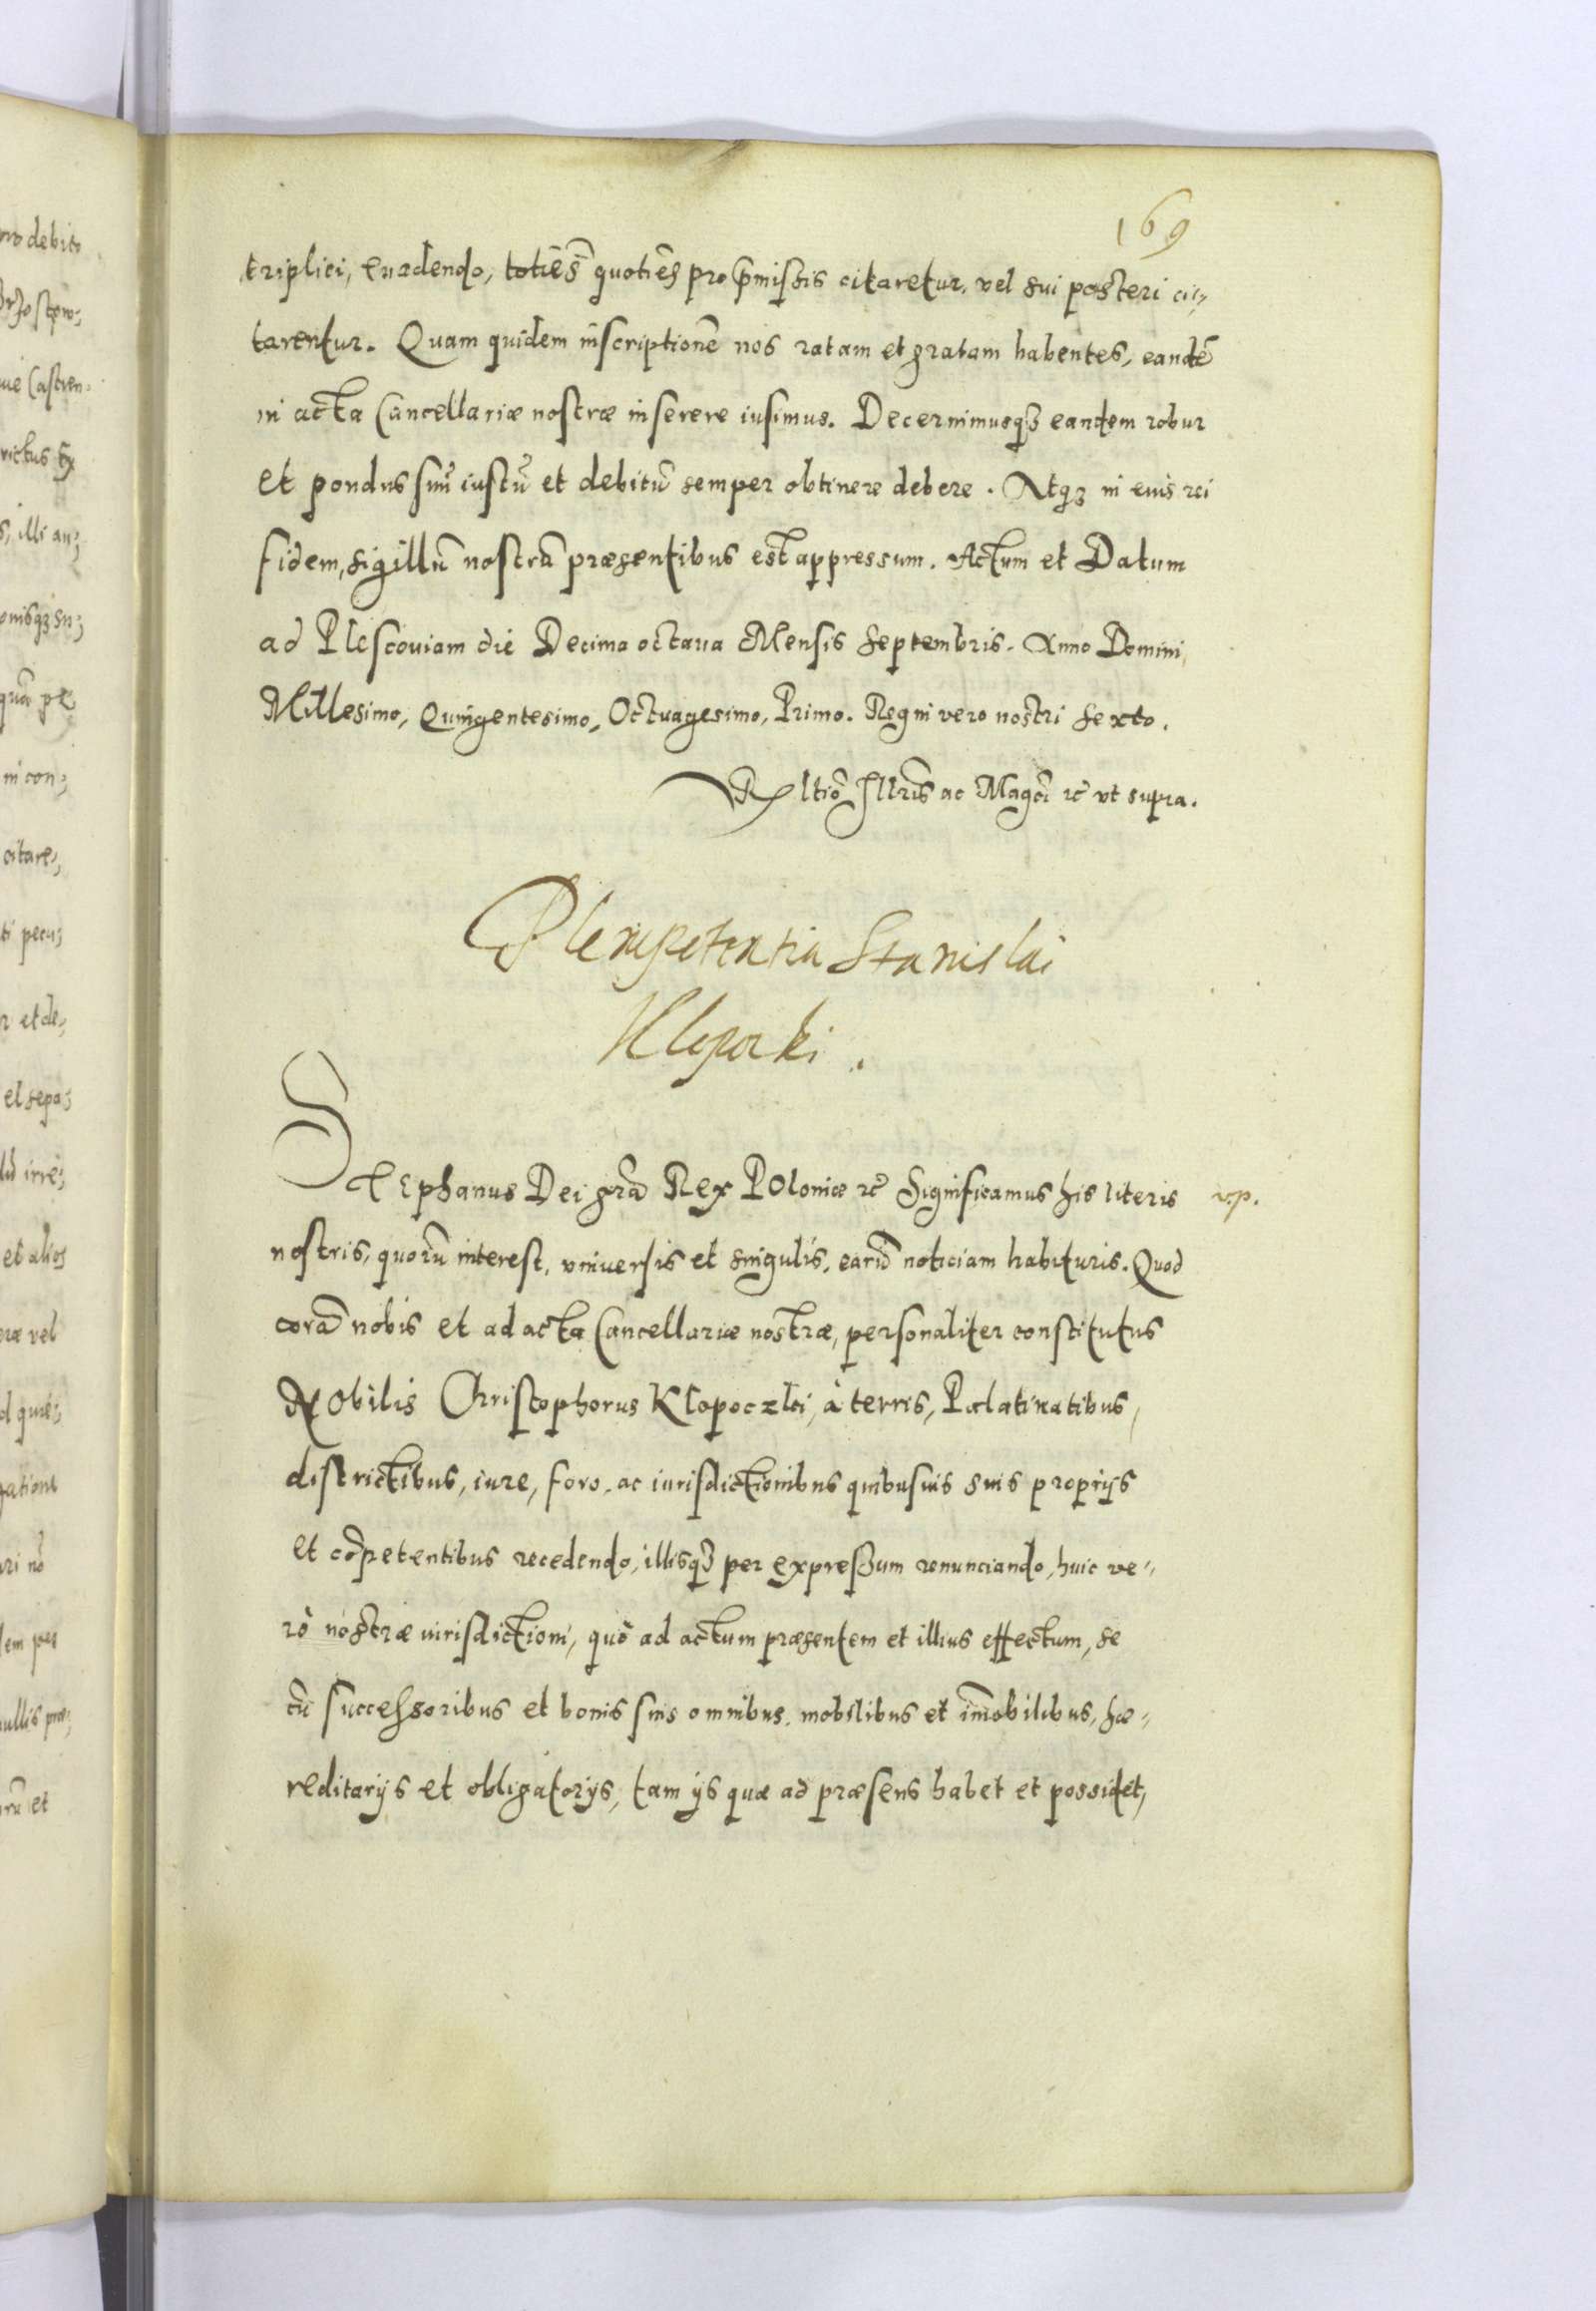 169
triplici, euadendo, totiēs quotiēs pro p̄missis citaretur, vel sui posteri ci„
tarentur. Quam quidem inscriptionē nos ratam et gratam habentes, eandē
in acta Cancellariæ nostræ inserere iusimus. Decernimusqꝫ eandem robur
et pondus suū iustū et debitū semper obtinere debere. Atqꝫ in eius rei
fidem, sigillū nostrū præsentibus est appressum. Actum et Datum
ad Plescouiam die Decima octaua Mensis Septembris. Anno Domini,
Millesimo, Quingentesimo, Octuagesimo, Primo. Regni vero nostri sexto.
Rltiō Illris ac Magci rc̄ vt supra.
Plenipotentia Stanislai
Klopocki.
Stephanus Dei grā Rex Poloniæ rc̄ Significamus his literis
v.p.
nostris, quorū interest, vniuersis et singulis, earū noticiam habituris. Quod
corā nobis et ad acta Cancellariæ nostræ, personaliter constitutus
Nobilis Christophorus Klopoczki, à terris, Palatinatibus,
districtibus, iure, foro, ac iurisdictionibus quibusuis suis proprijs
et cōpetentibus recedendo, illisqꝫ per expreßum renunciando, huic ve„
rò nostræ iurisdictioni, quò ad actum præsentem et illius effectum, se
cū successoribus et bonis suis omnibus, mobilibus et im̄obilibus, hæ„
reditarijs et obligatorijs, tam ijs quæ ad præsens habet et possidet,